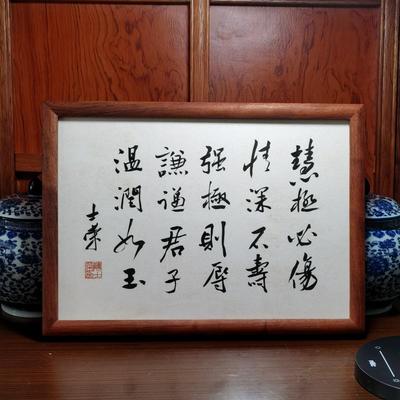 慧極必傷
情深不壽
强極則辱
謙谦君子
溫潤如玉
士榮